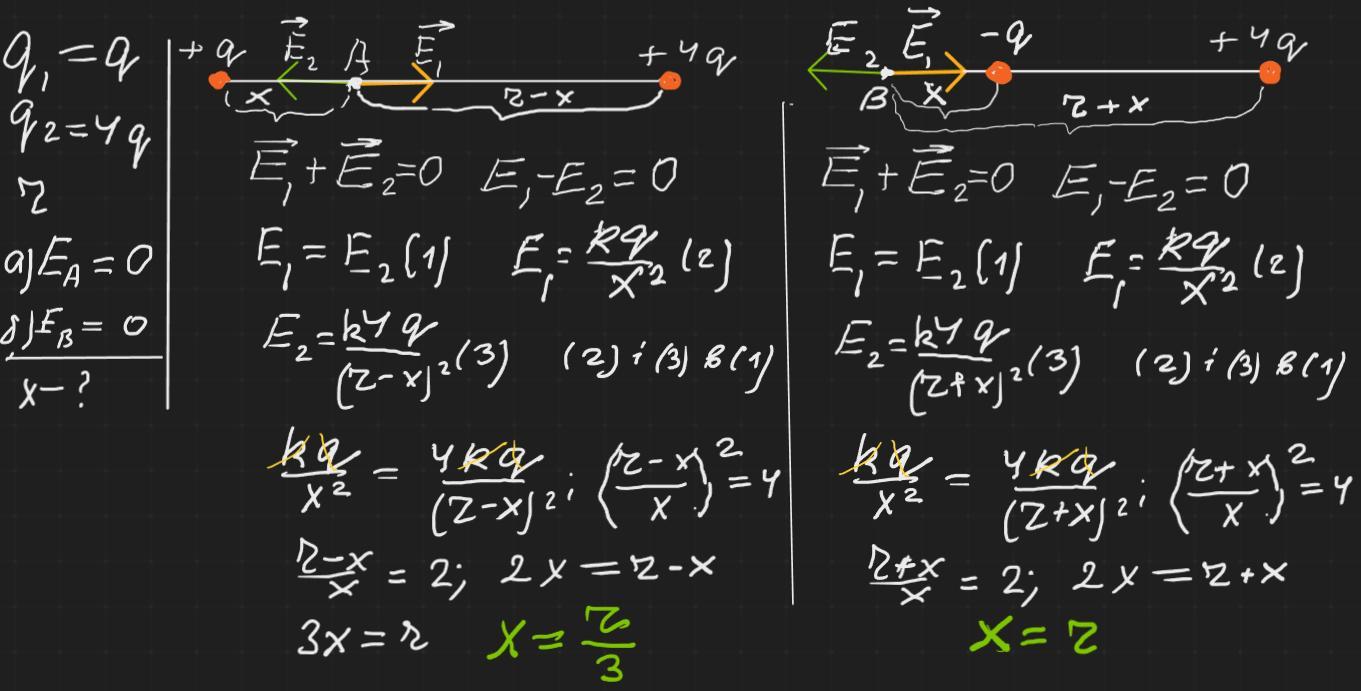 q₁ = q
q₂ = 4q
r
а) E_A = 0
б) E_B = 0
x - ?
+q E⃗₂ A E⃗₁ +4q
x r - x
E⃗₁ + E⃗₂ = 0 E₁ - E₂ = 0
E₁ = E₂ (1) E₁ = kq/x² (2)
E₂ = k4q/(r - x)² (3) (2) і (3) в (1)
kq/x² = 4kq/(r - x)²; ((r - x)/x)² = 4
(r - x)/x = 2; 2x = r - x
3x = r x = r/3
E⃗₂ E⃗₁ -q +4q
B x r + x
E⃗₁ + E⃗₂ = 0 E₁ - E₂ = 0
E₁ = E₂ (1) E₁ = kq/x² (2)
E₂ = k4q/(r + x)² (3) (2) і (3) в (1)
kq/x² = 4kq/(r + x)²; ((r + x)/x)² = 4
(r + x)/x = 2; 2x = r + x
x = r